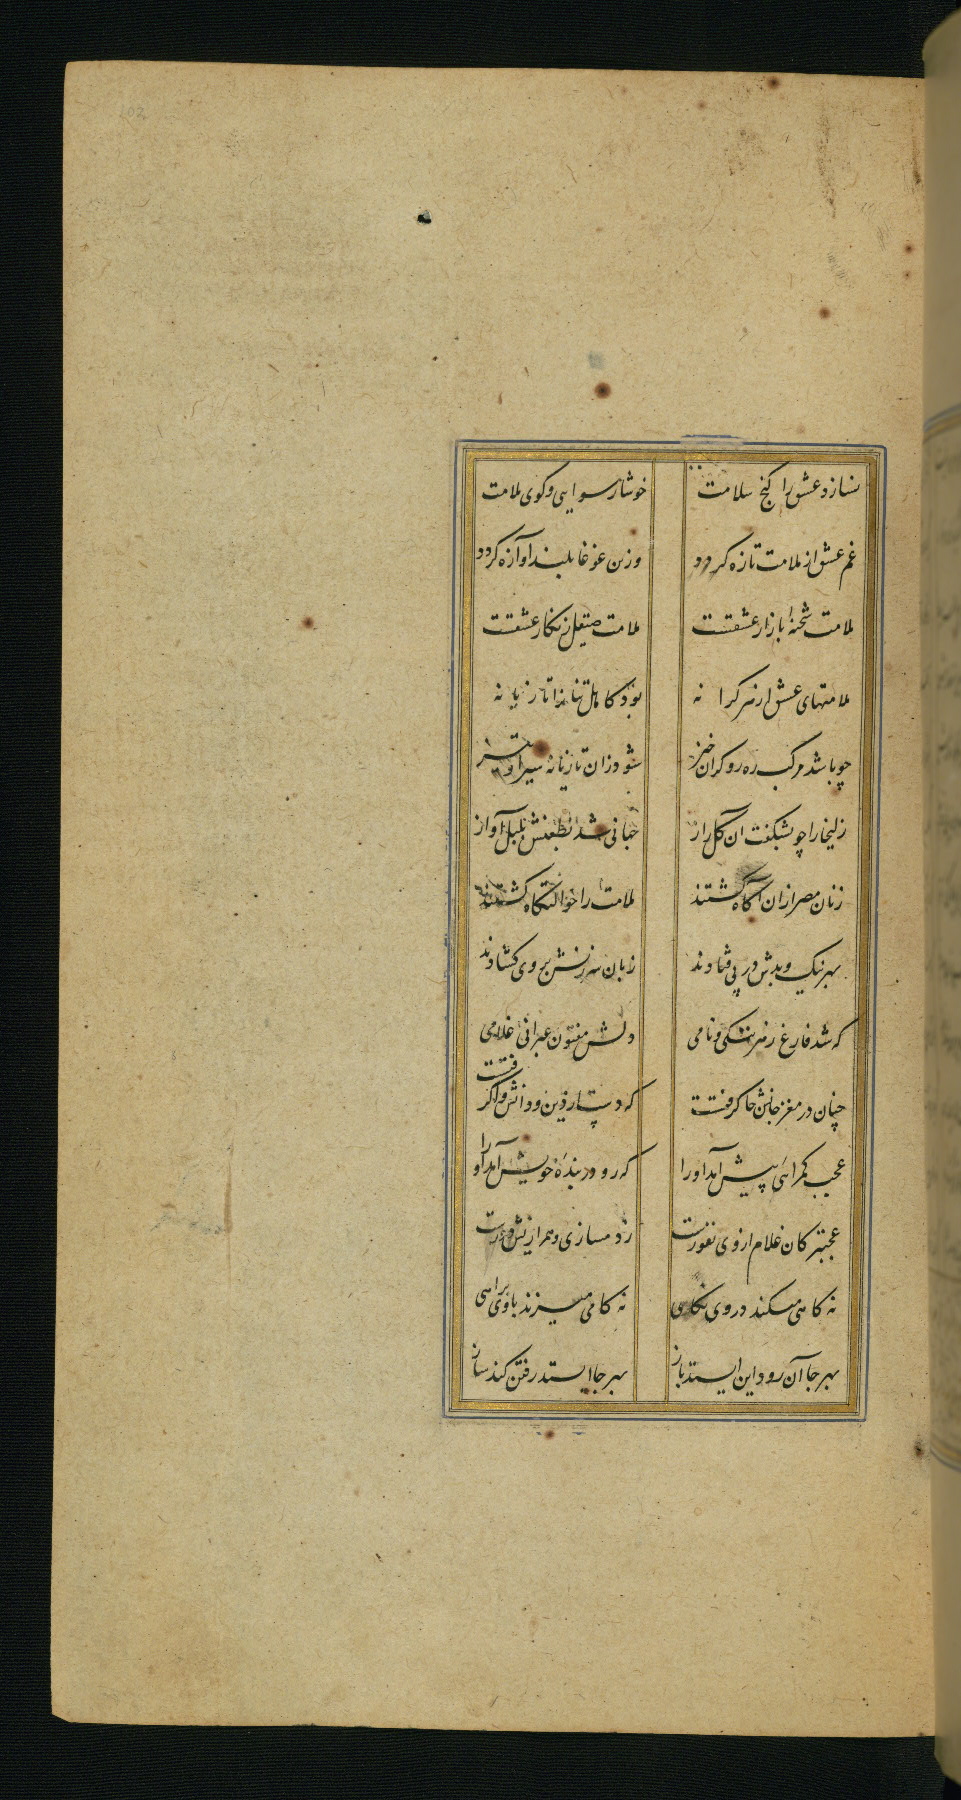 نسازد عشق را کنج سلامت خوشا رسوایی و کوی ملامت
غم عشق از ملامت تازه کردد وزین غوغا بلند آوازه کردد
ملامت شحنهٔ بازار عشقست ملامت صیقل زنکار عشقست
ملامتهای عشق از هر کرانه بود کاهل تنانرا تازیانه
چو باشد مرکب ره رو کران خیز شود زان تازیانه سیر او تیز
زلیخا را چو بشکفت آن کل راز جهانی شد بطعنش بلبل آواز
زنان مصر ازان آکاه کشتند ملامت را حوالتکاه کشتند
بهر نیک و بدش در پی فتادند زبان سرزنش بروی کشادند
که شد فارغ ز هر ننکی و نامی دلش مفتون عبرانی غلامی
چنان در مغز جانش جا کرفتست که دست از دین و دانش واکرفتست
عجب کمراهیی پیش آمد او را که رو در بندهٔ خویش آمد او را
عجبتر کان غلام از وی نفورست ز دمسازی و همرازیش دورست
نه کاهی میکند در وی نکاهی نه کامی میزند با وی براهی
بهر جا آن رود این ایستد باز بهر جا ایستد رفتن کند ساز